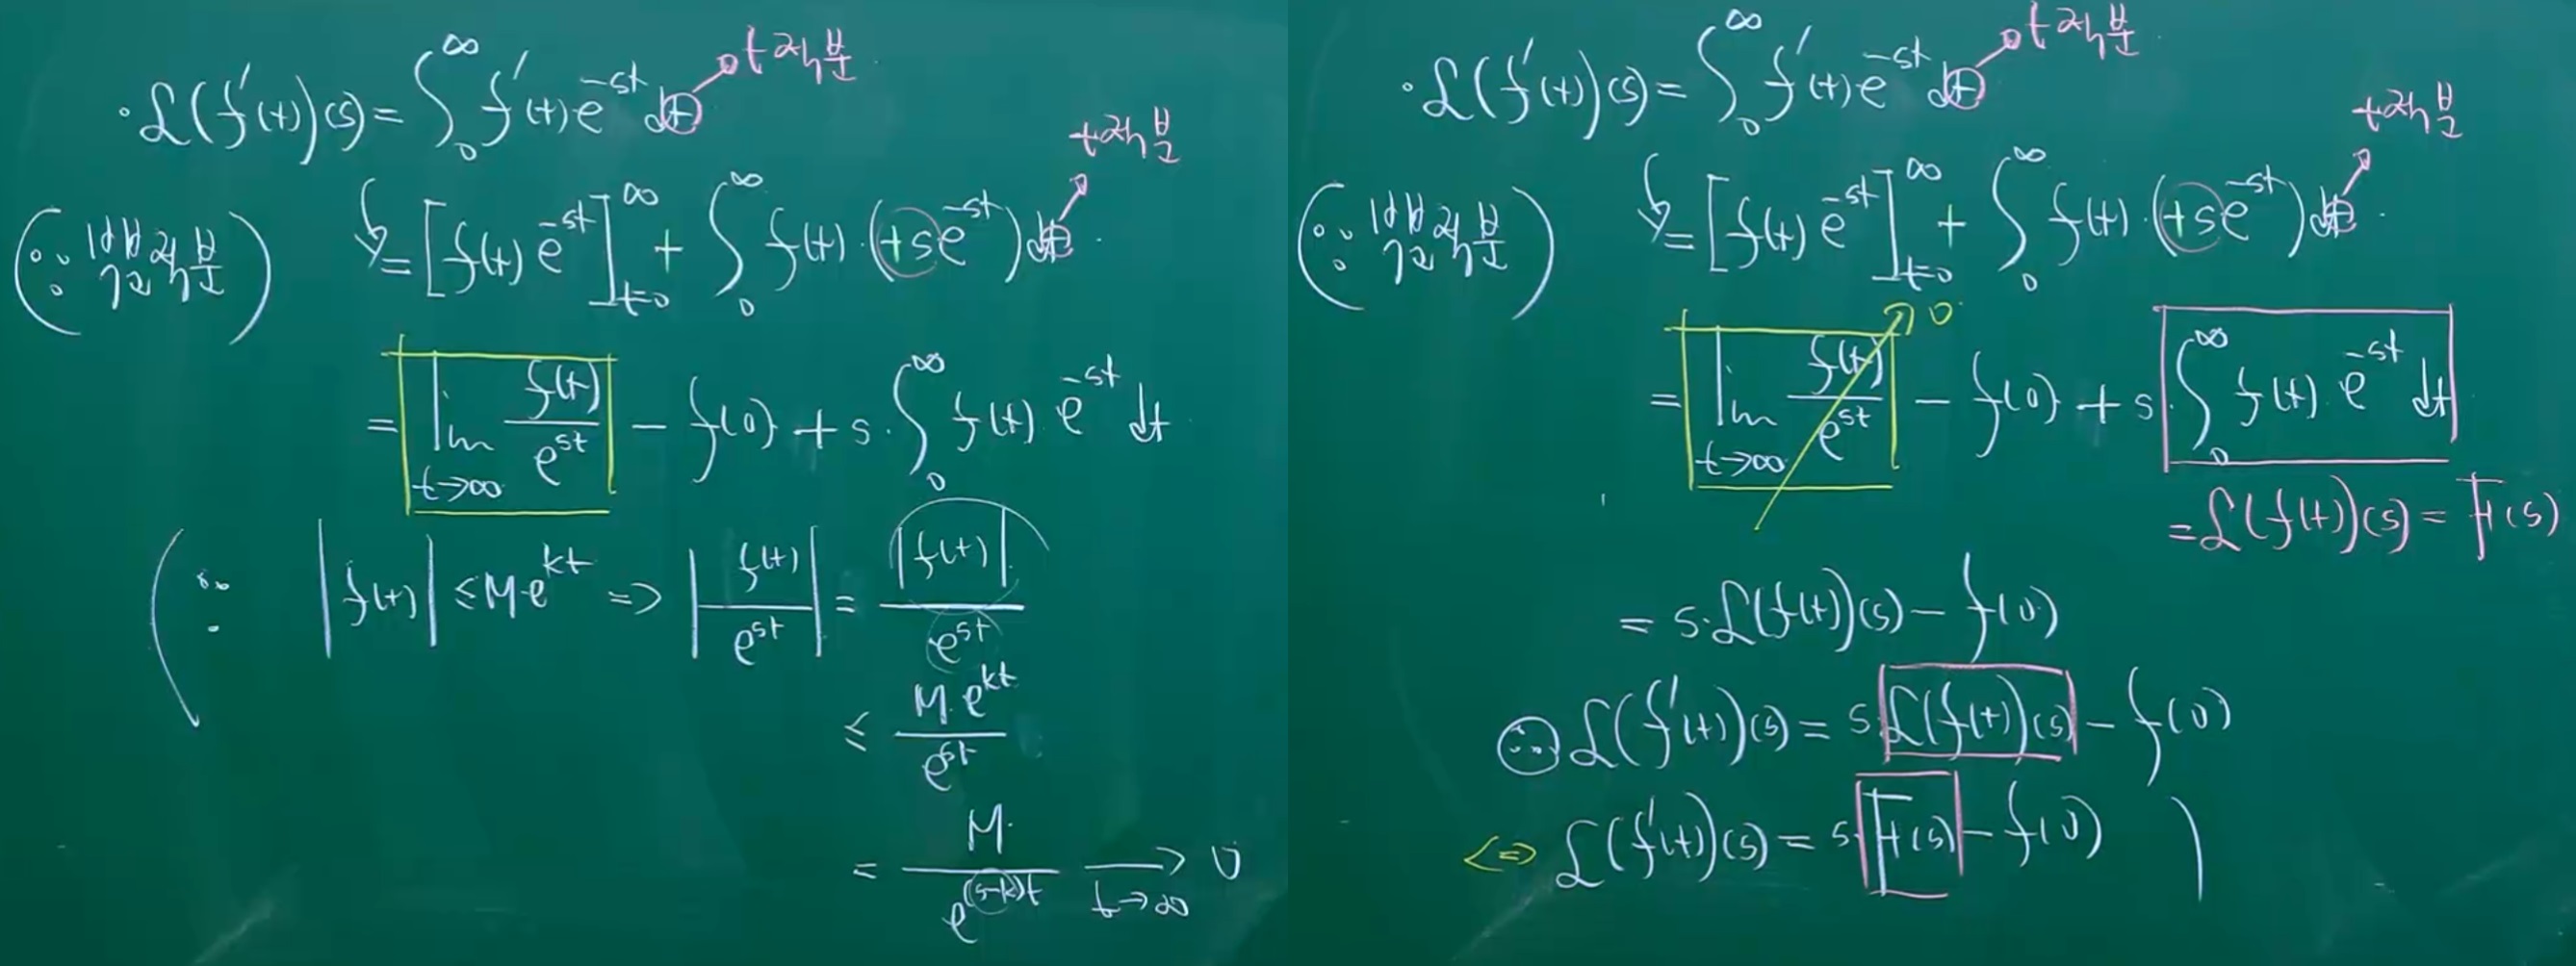 · ℒ(f'(t))(s) = ∫₀^∞ f'(t) e^{-st} dt → t 적분
(∵ 부분적분) = [f(t) e^{-st}]_{t=0}^∞ + ∫₀^∞ f(t)·(+s e^{-st}) dt → t 적분
= lim_{t→∞} f(t)/e^{st} - f(0) + s·∫₀^∞ f(t) e^{-st} dt
(∵ |f(t)| ≤ M·e^{kt} => |f(t)/e^{st}| = |f(t)|/e^{st}
≤ M·e^{kt}/e^{st}
= M/e^{(s-k)t} → 0 t→∞
· ℒ(f'(t))(s) = ∫₀^∞ f'(t) e^{-st} dt → t 적분
(∵ 부분적분) = [f(t) e^{-st}]_{t=0}^∞ + ∫₀^∞ f(t)·(+s e^{-st}) dt → t 적분
= lim_{t→∞} f(t)/e^{st} → 0 - f(0) + s·∫₀^∞ f(t) e^{-st} dt
= ℒ(f(t))(s) = F(s)
= s·ℒ(f(t))(s) - f(0)
∴ ℒ(f'(t))(s) = s·ℒ(f(t))(s) - f(0)
<=> ℒ(f'(t))(s) = s·F(s) - f(0) )